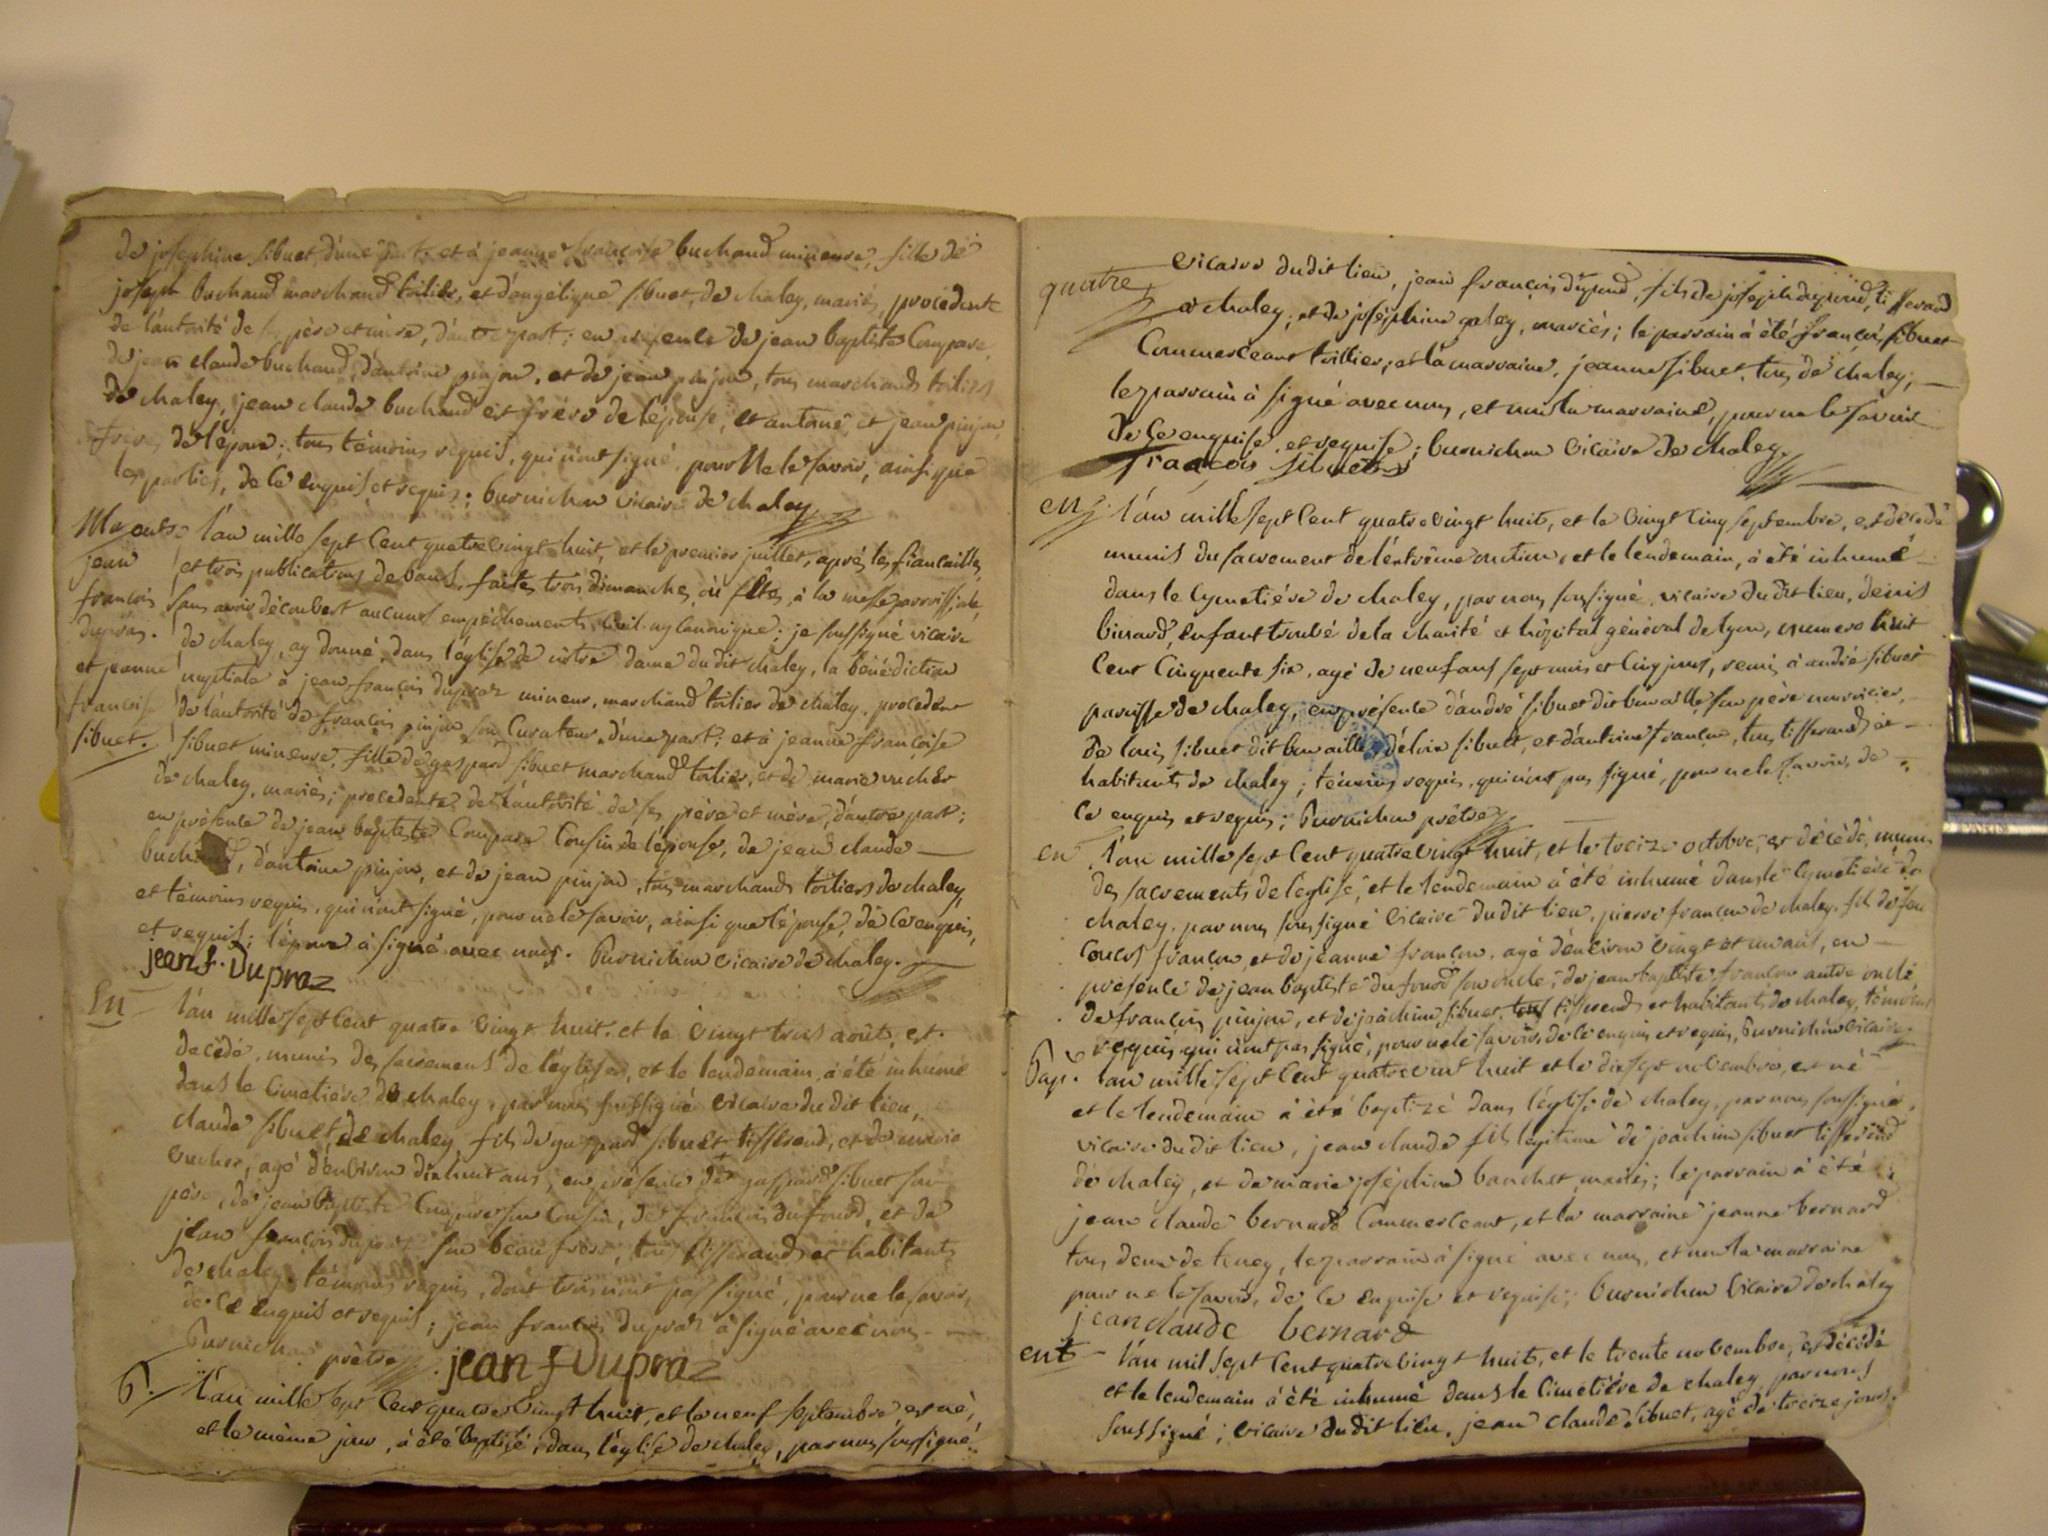 de josephine sibuet, d'une part; et à jeanne françoise buchand mineure, fille de
joseph buchand marchand toilier, et d'angélique sibuet, de chaley, mariés, procédente
de l'autorité de ses père et mère, d'autre part; en présence de jean baptiste Compare,
de jean claude buchand, d'antoine pinjon, et de jean pinjon, tous marchands toiliers
de chaley, jean claude buchand est frère de l'épouse, et antoine et jean pinjon,
frères de l'époux; tous témoins requis, qui n'ont signé pour ne le savoir, ainsi que
les parties, de ce enquis et requis; burnichon vicaire de chaley
jean
françois
dupras.
et jeanne
françoise
sibuet.
L'an mille sept Cent quatre vingt huit, et le premier juillet, après les fiançailles,
et trois publications de bans, faites trois dimanches, ou fêtes, à la messe parroissiale,
sans avoir découvert aucuns empêchements civil ny canonique; je soussigné vicaire
de chaley, ay donné, dans l'église de nôtre dame du dit chaley, la bénédiction
nuptiale à jean françois dupraz mineur, marchand toilier de chaley, procédent
de l'autorité de françois pinjon son Curateur, d'une part; et à jeanne françoise
sibuet mineure, fille de gaspard sibuet marchand toilier, et de marie vucher
de chaley, mariés; procédente de l'autorité de ses père et mère, d'autre part;
en présence de jean baptiste Compare Cousin de l'épouse, de jean claude
buchand, d'antoine pinjon, et de jean pinjon, tous marchands toiliers de chaley,
et témoins requis, qui n'ont signé, pour ne le savoir, ainsi que l'épouse, de ce enquis,
et requis; l'époux à signé avec nous. Burnichon vicaire de chaley.
jean f. Dupraz
En L'an mille sept Cent quatre vingt huit, et le vingt trois août, est
décédé, munis des sacremens de l'église, et le lendemain, a été inhumé
dans le Cimetière de chaley, par nous soussigné vicaire du dit lieu,
claude sibuet, de chaley, fils de gaspard sibuet tisserand, et de marie
vucher, agé d'environ dixhuit ans, en présence de gaspard sibuet son
père, de jean baptiste Compare son Cousin, de françois dufour, et de
jean françois dupraz son beau frère, tous tisserands et habitants
de chaley, témoins requis, dont trois n'ont pas signé, pour ne le savoir,
de ce enquis et requis; jean françois dupraz à signé avec nous.
Burnichon prêtre jean f Dupraz
b. L'an mille sept Cent quatre vingt huit, et le neuf septembre est né,
et le même jour, à été baptisé, dans l'église de chaley, par nous soussigné
quatre vicaire du dit lieu, jean françois, fils de joseph tisserand
à chaley, et de joséphine galey, mariés; le parrain à été françois sibuet
Commerceant toillier; et la marraine, jeanne sibuet, tous de chaley;
le parrain à signé avec nous, et non la marraine, pour ne le savoir
de Ce enquise et requise; burnichon vicaire de chaley.
françois sibuet
en L'an mille sept Cent quatre vingt huit, et le vingt Cinq septembre, est décédé
munis du sacrement de l'extrême onction, et le lendemain, à été inhumé
dans le Cymetière de chaley, par nous soussigné, vicaire du dit lieu, denis
binard, enfant trouvé de la charité et hôpital général de lyon, numero huit
Cent Cinquente six, agé de neuf ans sept mois et Cinq jours, remis à andré sibuet
paroisse de chaley, en présence d'andré sibuet dit bivaille son père nourricier,
de louis sibuet dit bivaille, d'eloi sibuet, et d'antoine françon, tous tisserands et
habitants de chaley; témoins requis, qui n'ont pas signé, pour ne le savoir, de
Ce enquis et requis; Burnichon prêtre
en L'an mille sept Cent quatre vingt huit, et le treize octobre, est décédé, munis
des sacrements de l'église, et le lendemain à été inhumé dans le Cymetière de
chaley, par nous soussigné vicaire du dit lieu, pierre françon de chaley, fils de feu
françon, et de jeanne françon, agé d'environ vingt et un ans, en
présence de jean baptiste dufour son oncle, de jean baptiste françon autre oncle
de françois pinjon, et de joachim sibuet, tous tisserands et habitants de chaley, témoins
requis qui n'ont pas signé, pour ne le savoir, de ce enquis et requis, Burnichon vicaire
Bap. L'an mille sept Cent quatre vint huit et le dix sept novembre, est né
et le lendemain à été baptizé dans l'église de chaley, par nous soussigné,
vicaire du dit lieu, jean claude fils légitime de joachim sibuet tisserand
de chaley, et de marie joséphine banchet, mariés; le parrain à été
jean claude bernard Commerceant, et la marraine jeanne bernard
tous deux de teney, le parrain à signé avec nous, et non la marraine
pour ne le savoir, de Ce enquise et requise; burnichon vicaire de chaley
jean claude bernard
ent L'an mil sept Cent quatre vingt huit, et le trente novembre, est décédé
et le lendemain à été inhumé dans le Cimetière de chaley, par nous
soussigné; vicaire du dit lieu, jean claude sibuet, agé de treize jours,